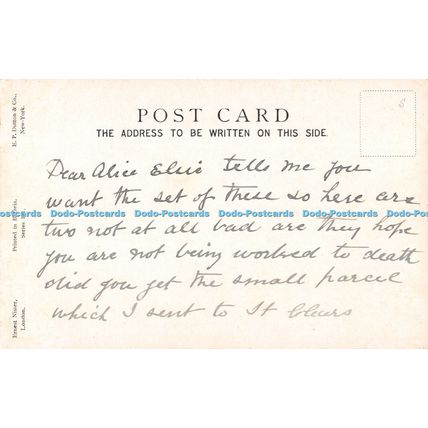 POST CARD
THE ADDRESS TO BE WRITTEN ON THIS SIDE.
E. P. Dutton & Co.,
New York.
Printed in Bavaria.
Series
Ernest Nister,
London.
Dear Alice Elsie tells me you
want the set of these so here are
Dodo-Postcards Dodo-Postcards Dodo-Postcards Dodo-Postcards Dodo-Postcards
two not at all bad are they hope
you are not being worked to death
did you get the small parcel
which I sent to St